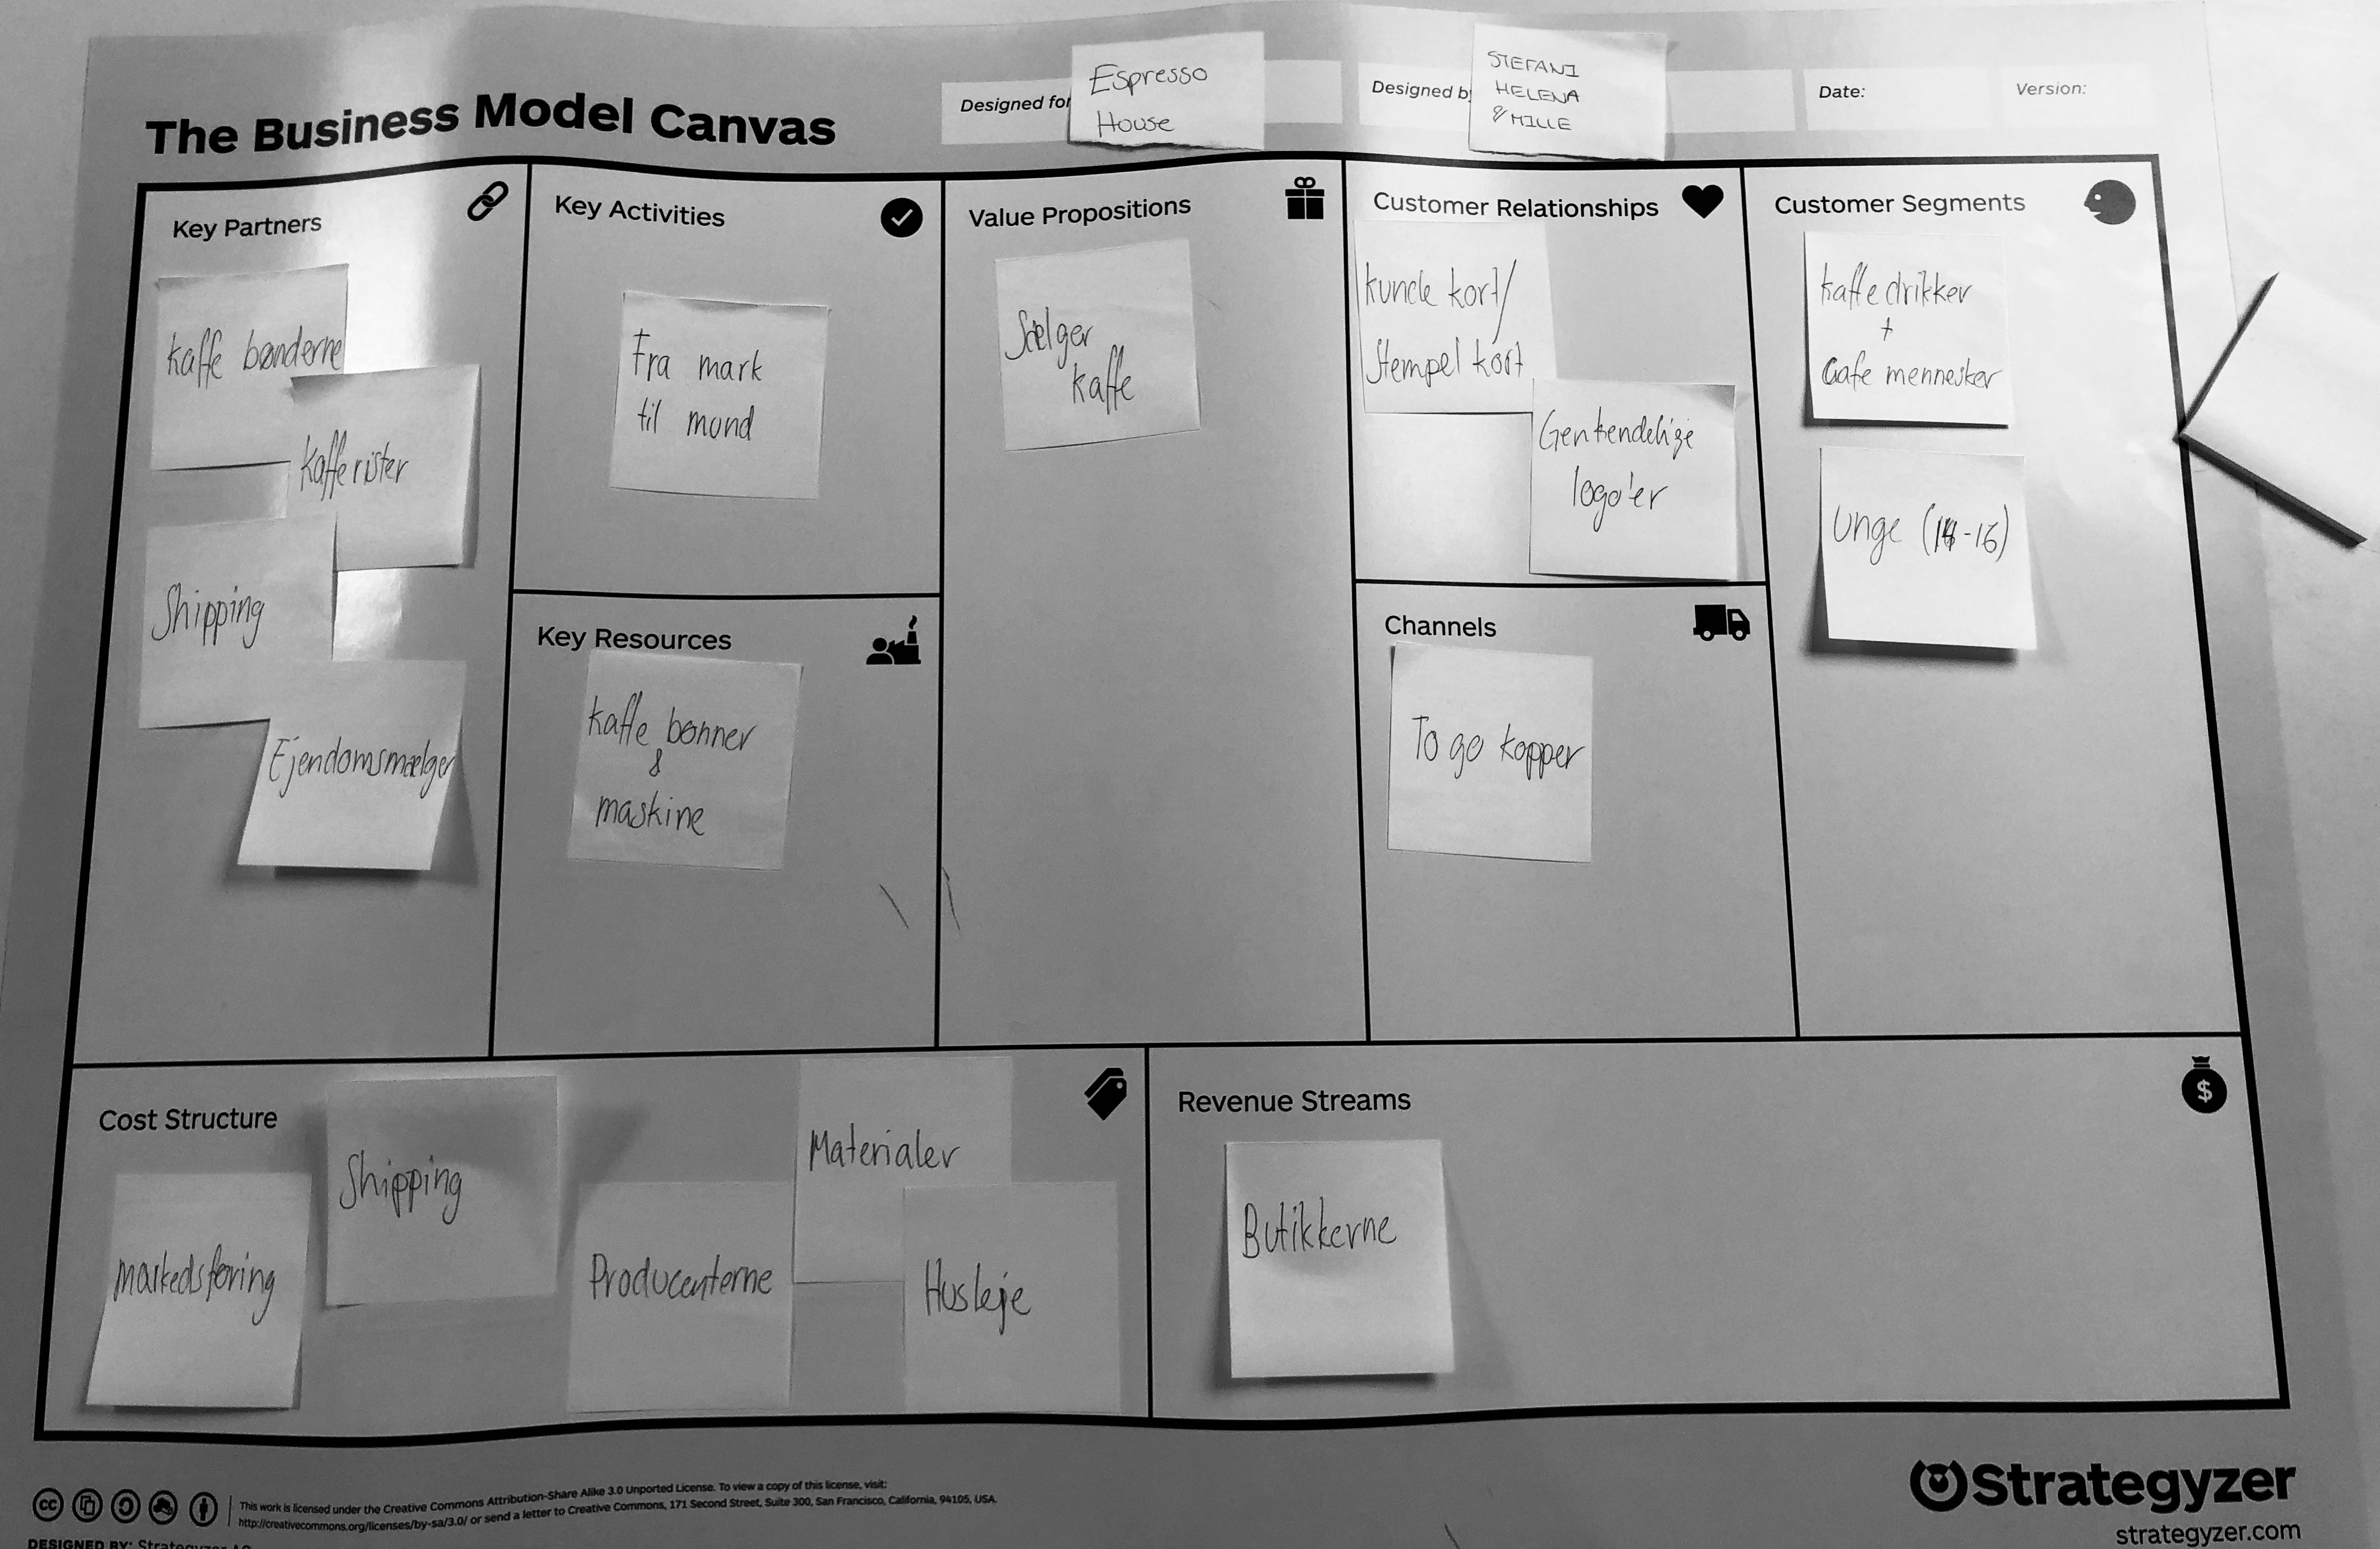 The Business Model Canvas
Designed for
Espresso
House
Designed b
STEFANI
HELENA
& MILLE
Date:
Version:
Key Partners
kaffe bønderne
kafferister
Shipping
Ejendomsmælger
Key Activities
Fra mark
til mund
Key Resources
kaffe bønner
&
maskine
Value Propositions
Sælger
kaffe
Customer Relationships
kunde kort/
Stempel kort
Genkendelige
logo'er
Channels
To go kopper
Customer Segments
kaffe drikker
+
Cafe mennesker
Unge (14-16)
Cost Structure
markedsføring
Shipping
Producenterne
Materialer
Husleje
Revenue Streams
Butikkerne
$
cc
This work is licensed under the Creative Commons Attribution-Share Alike 3.0 Unported License. To view a copy of this license, visit:
http://creativecommons.org/licenses/by-sa/3.0/ or send a letter to Creative Commons, 171 Second Street, Suite 300, San Francisco, California, 94105, USA.
DESIGNED BY: Strategyzer AG
Strategyzer
strategyzer.com